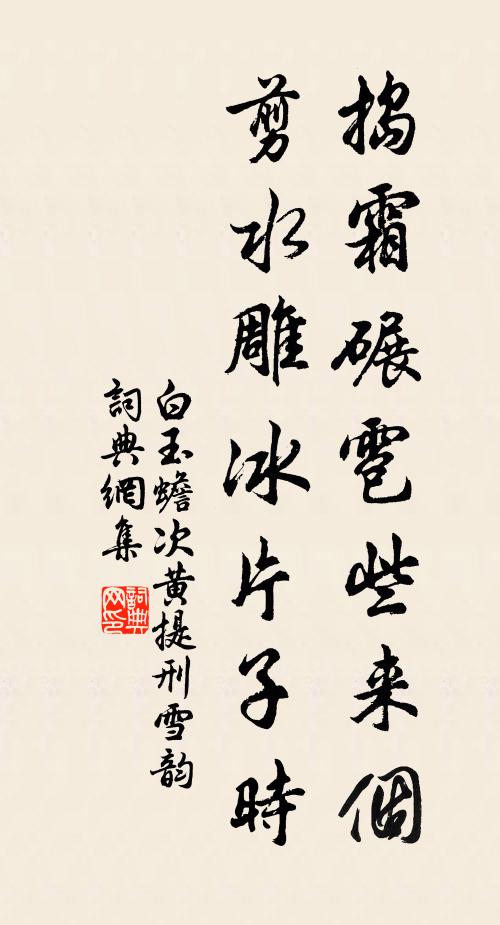 搗霜碾雹些来個
剪水雕冰片子時
白玉蟾次黄提刑雪韵
詞典網集
詞典网印